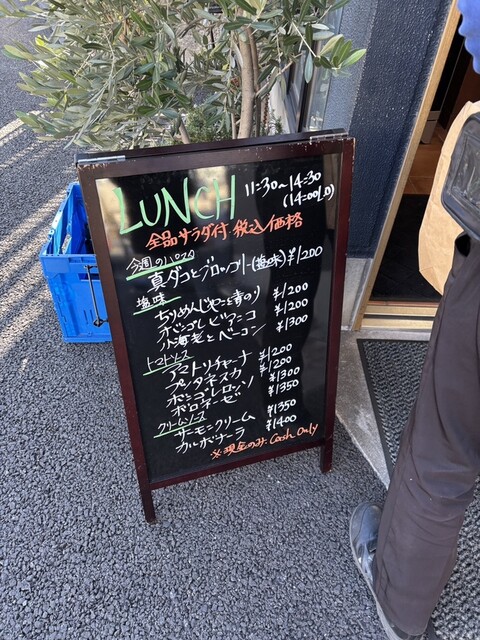 LUNCH 11:30~14:30
(14:00LO)
全品サラダ付 税込価格
今週のパスタ
真ダコとブロッコリー(塩味) ¥1200
塩味
ちりめんじゃこと青のり ¥1200
ボンゴレビアンコ ¥1200
小海老とベーコン ¥1300
トマトソース
アマトリチャーナ ¥1200
プッタネスカ ¥1200
ボンゴレロッソ ¥1300
ボロネーゼ ¥1350
クリームソース
サーモンクリーム ¥1350
カルボナーラ ¥1400
※現金のみ Cash Only